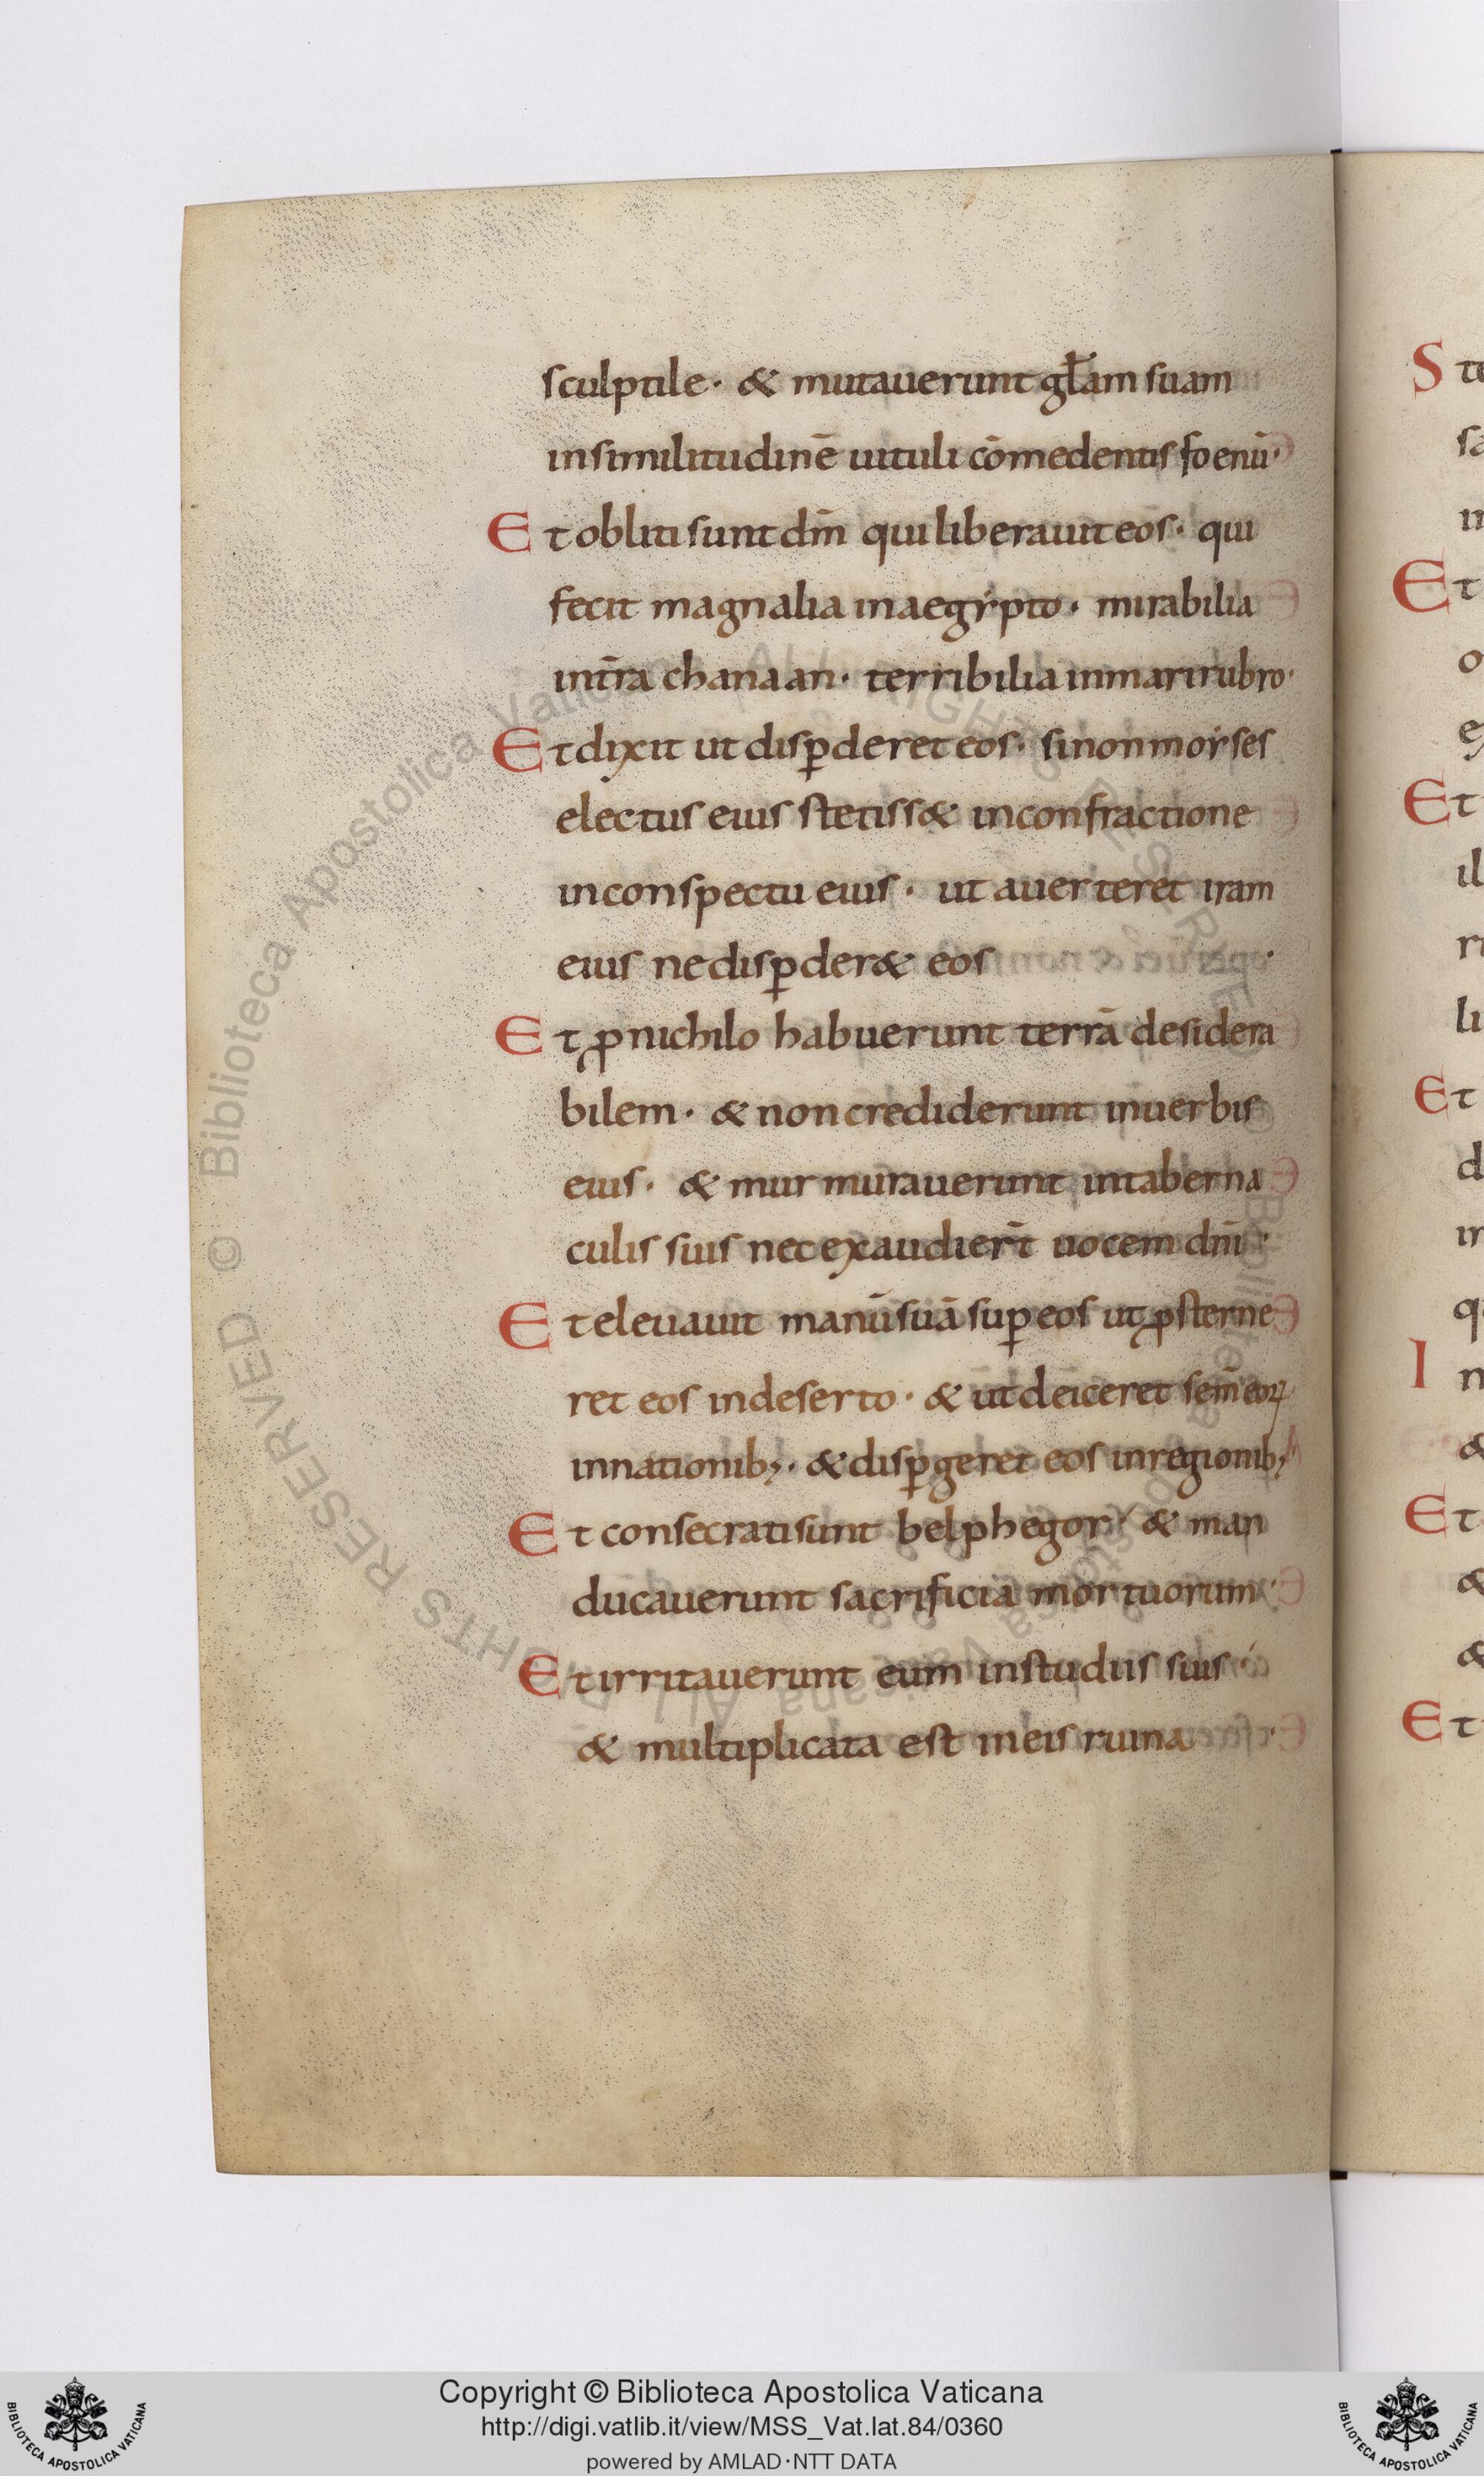 sculptile· & mutauerunt gl̄am suam
insimilitudinē uituli cōmedentis foenū·
Et obliti sunt dm̄ qui liberauit eos· qui
fecit magnalia inaegẏpto· mirabilia
int̄ra chanaan· terribilia inmari rubro·
Et dixit ut disp̱deret eos· sinon moẏses
electus eius stetiss& inconfractione
inconspectu eius· ut auerteret iram
eius nedisp̱der& eos
Et ꝓnichilo habuerunt terrā desidera
bilem· & non crediderunt inuerbis
eius· & murmurauerunt intaberna
culis suis nec exaudier̄t uocem dnī·
Et eleuauit manū suā sup̱ eos ut ꝓsterne
ret eos indeserto· & ut deiceret sem̄ eoꝝ
innationib;· & disp̱geret eos inregionib;
Et consecrati sunt belphegor· & man
ducauerunt sacrificia mortuorum·
Et irritauerunt eum instudiis suis·
& multiplicata est ineis ruina·
S te
sa
Et
o
Et
il
li
Et
d
q
I n
&
Et
&
&
Et
© Biblioteca Apostolica Vaticana ALL RIGHTS RESERVED
Copyright © Biblioteca Apostolica Vaticana
http://digi.vatlib.it/view/MSS_Vat.lat.84/0360
powered by AMLAD·NTT DATA
BIBLIOTECA APOSTOLICA VATICANA
BIBLIOTECA APOSTOLICA VATICANA